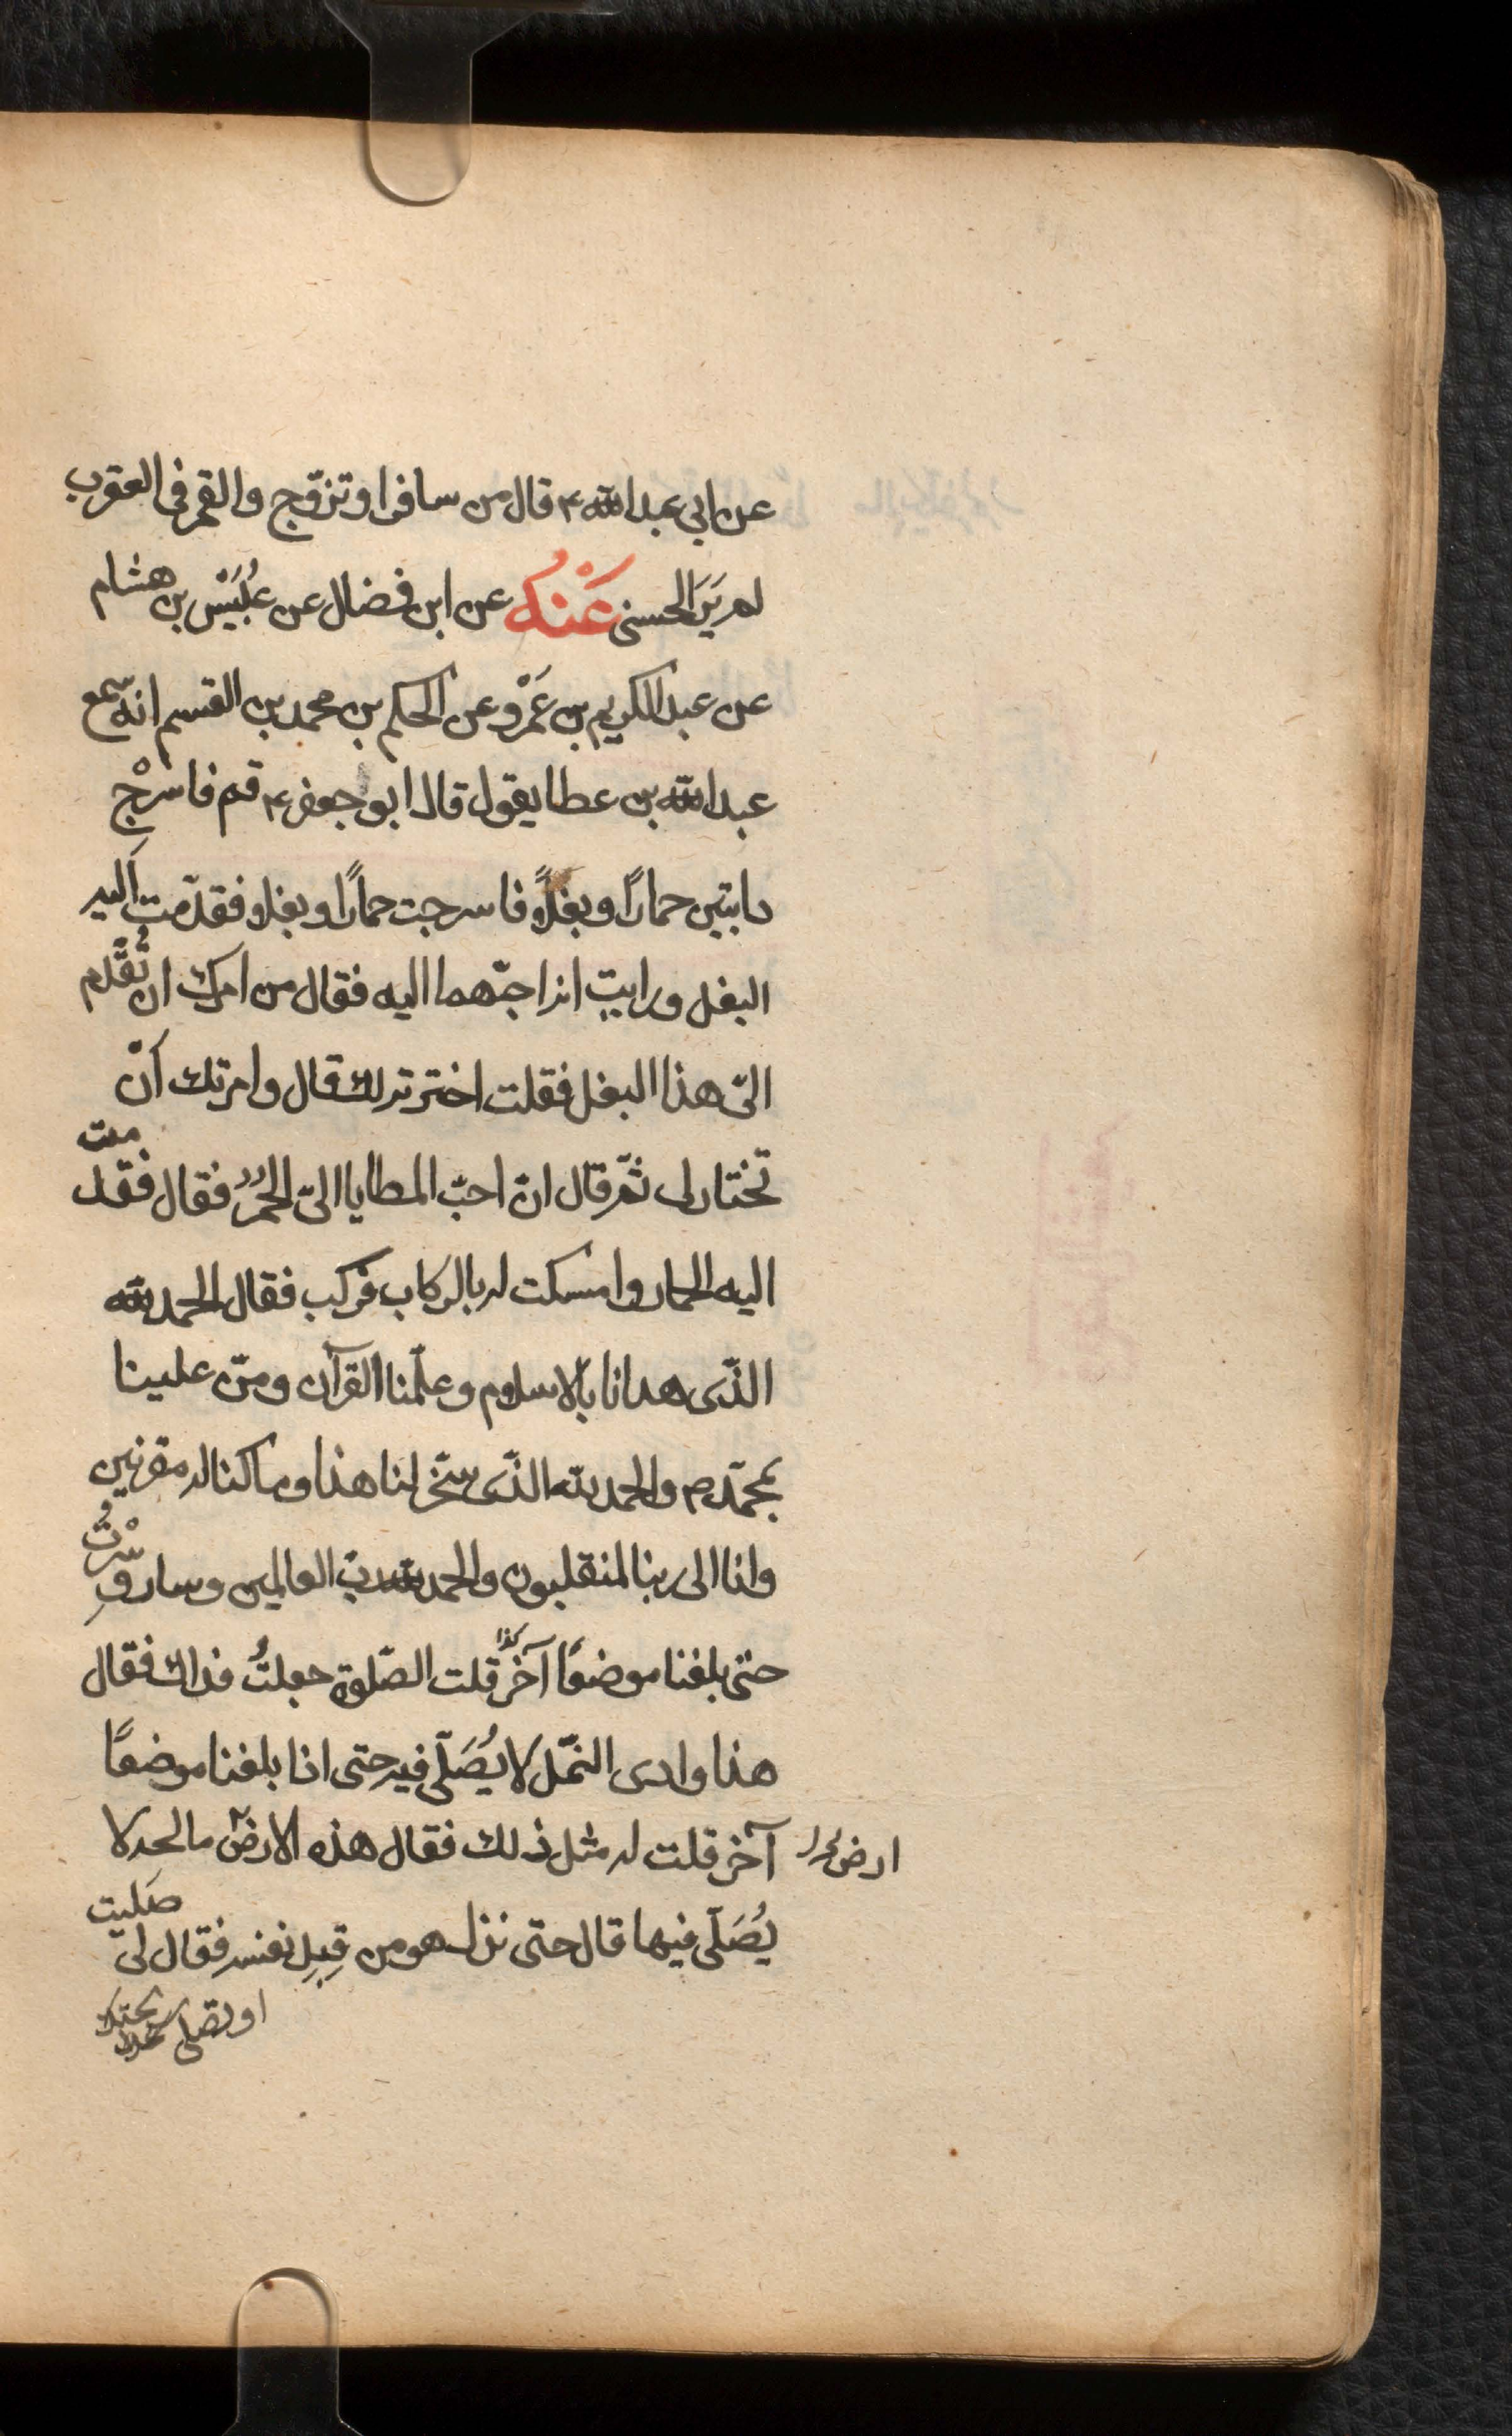 عن ابى عبد الله ع قال من سافر او تزوّج والقمر فى العقرب
لم يَرَ الحسنى عَنْهُ عن ابن فضال عن عُبَيْس بن هشام
عن عبد الكريم بن عَمْرو عن الحكم بن محمد بن القسم انه سمع
عبد الله بن عطا يقول قال ابو جعفر ع قم فاسْرِجْ
دابتين حمارًا وبغلًا فاسرجت حمارًا وبغلا فقدّمت اليه
البغل ورايت انه احبّهما اليه فقال من امرك ان تُقَدّم
الىّ هذا البغل فقلت اخترته لك قال وامرتك اَنْ
تختار لى ثمّ قال انّ احبّ المطايا الىّ الحُمُر فقال فقد
مت
اليه الحمار وامسكت له بالركاب فركب فقال الحمد لله
الذّى هدانا بالاسلام وعلّمنا القرآن ومنّ علينا
بمحمّد ص والحمد لله الذّى سخّر لنا هذا وما كنا له مقرنين
وانا الى ربنا لمنقلبون والحمد لله ربّ العالمين وسار وسِرْتُ
حتى بلغنا موضعًا آخر كذا قلت الصّلوة جعلتُ فداك فقال
هذا وادى النمّل لا يُصَلّى فيه حتى اذا بلغنا موضعًا
آخر قلت له مثل ذلك فقال هذه الارض مالحه لا
ارض
يُصَلّى فيها قال حتى نزل هو من قِبِلِ نفسه فقال لى
صَليت
او تصلى سبحتك